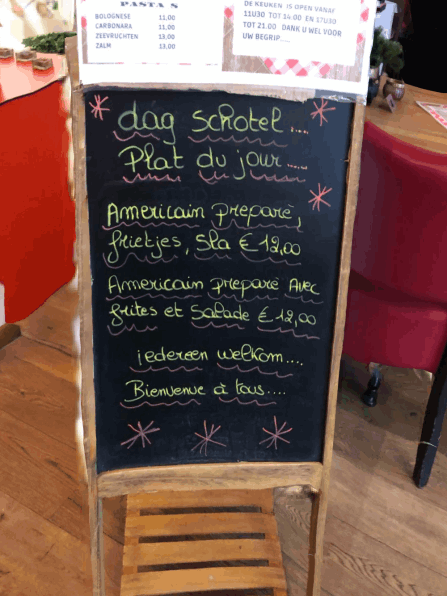 PASTA S
BOLOGNESE 11,00
CARBONARA 11,00
ZEEVRUCHTEN 13,00
ZALM 13,00
DE KEUKEN IS OPEN VANAF
11U30 TOT 14.00 EN 17U30
TOT 21.00 DANK U WEL VOOR
UW BEGRIP.....
dag schotel....
Plat du jour.....
Americain preparé,
frietjes, sla €12,00
Americain preparé Avec
frites et Salade €12,00
iedereen welkom....
Bienvenue à tous....